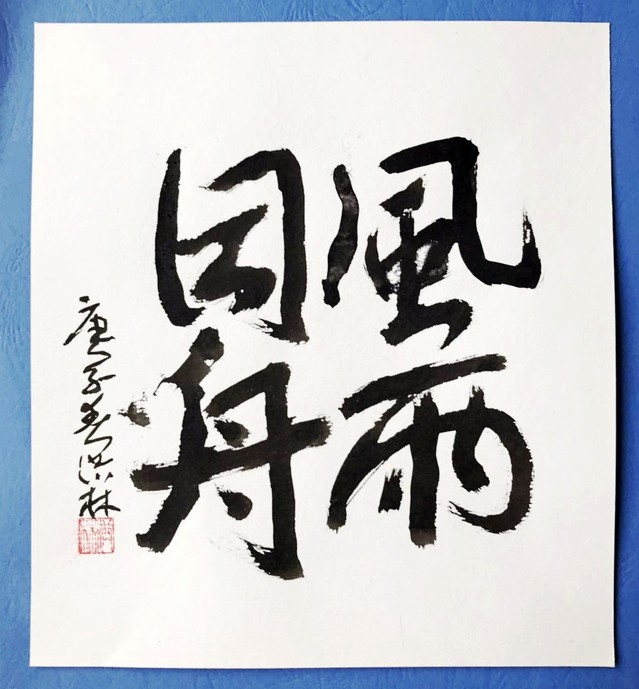 風雨
同舟
庚子春洪林